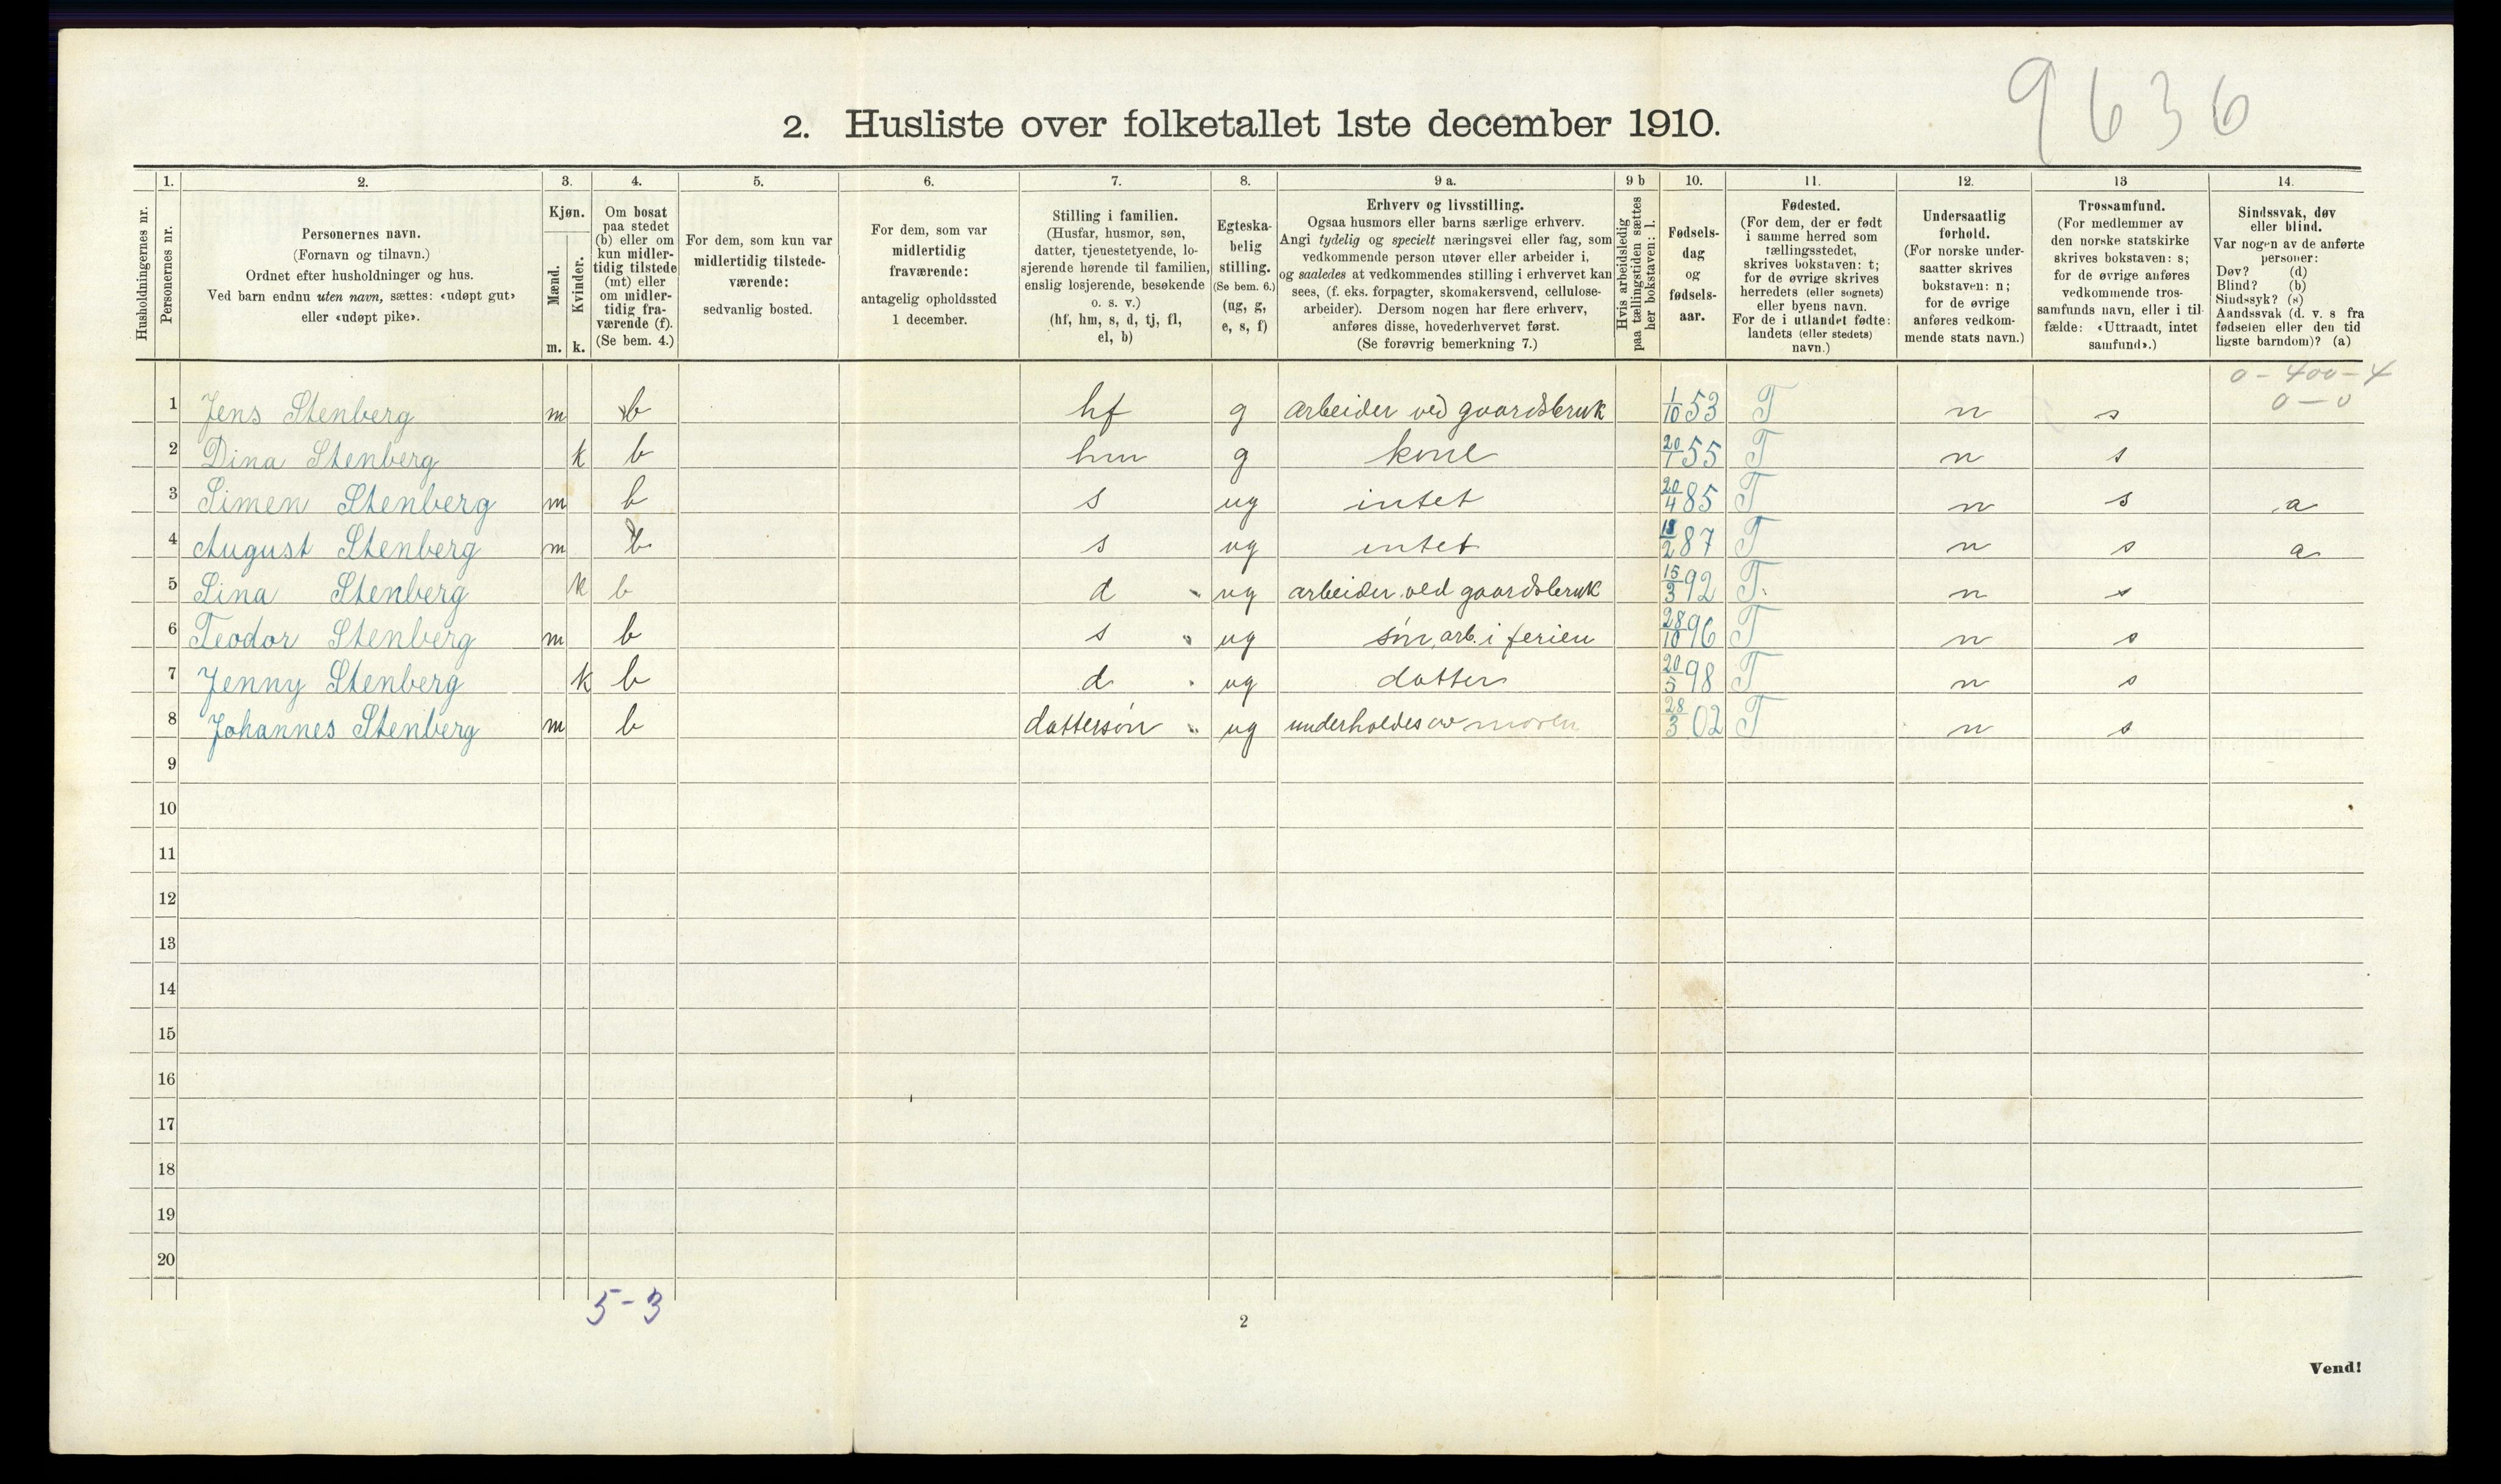 9636
2. Husliste over folketallet 1ste december 1910.
Husholdningernes nr.
1. Personernes nr.
2. Personernes navn. (Fornavn og tilnavn.) Ordnet efter husholdninger og hus. Ved barn endnu uten navn, sættes: «udøpt gut» eller «udøpt pike».
3. Kjøn. Mænd. m. Kvinder. k.
4. Om bosat paa stedet (b) eller om kun midler-tidig tilstede (mt) eller om midler-tidig fra-værende (f). (Se bem. 4.)
5. For dem, som kun var midlertidig tilstede-værende: sedvanlig bosted.
6. For dem, som var midlertidig fraværende: antagelig opholdssted 1 december.
7. Stilling i familien. (Husfar, husmor, søn, datter, tjenestetyende, lo-sjerende hørende til familien, enslig losjerende, besøkende o. s. v.) (hf, hm, s, d, tj, fl, el, b)
8. Egteska-belig stilling. (Se bem. 6.) (ug, g, e, s, f)
9 a. Erhverv og livsstilling. Ogsaa husmors eller barns særlige erhverv. Angi tydelig og specielt næringsvei eller fag, som vedkommende person utøver eller arbeider i, og saaledes at vedkommendes stilling i erhvervet kan sees, (f. eks. forpagter, skomakersvend, cellulose-arbeider). Dersom nogen har flere erhverv, anføres disse, hovederhvervet først. (Se forøvrig bemerkning 7.)
9 b Hvis arbeidsledig paa tællingstiden sættes her bokstaven: l.
10. Fødsels-dag og fødsels-aar.
11. Fødested. (For dem, der er født i samme herred som tællingsstedet, skrives bokstaven: t; for de øvrige skrives herredets (eller sognets) eller byens navn. For de i utlandet fødte: landets (eller stedets) navn.)
12. Undersaatlig forhold. (For norske under-saatter skrives bokstaven: n; for de øvrige anføres vedkom-mende stats navn.)
13 Trossamfund. (For medlemmer av den norske statskirke skrives bokstaven: s; for de øvrige anføres vedkommende tros-samfunds navn, eller i til-fælde: «Uttraadt, intet samfund».)
14. Sindssvak, døv eller blind. Var nogen av de anførte personer: Døv? (d) Blind? (b) Sindssyk? (s) Aandssvak (d. v. s fra fødselen eller den tid ligste barndom)? (a)
0 - 400 - 4
0 - 0
1 Jens Stenberg m b hf g arbeider ved gaardsbruk 1/10 53 T n s
2 Dina Stenberg k b hm g kone 20/1 55 T n s
3 Simen Stenberg m b s ug intet 20/4 85 T n s a
4 August Stenberg m b s ug intet 18/2 87 T n s a
5 Sina Stenberg k b d ug arbeider ved gaardsbruk 15/3 92 T. n s
6 Teodor Stenberg m b s ug søn, arb. i ferien 28/10 96 T n s
7 Jenny Stenberg k b d ug datter 20/5 98 T n s
8 Johannes Stenberg m b dattersøn ug underholdes av moren 28/3 02 T n s
9
10
11
12
13
14
15
16
17
18
19
20
5-3
2
Vend!